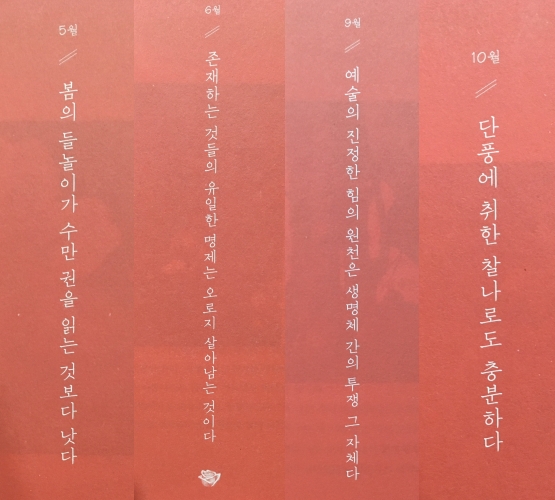 5월
봄의 들놀이가 수만 권을 읽는 것보다 낫다
6월
존재하는 것들의 유일한 명제는 오로지 살아남는 것이다
9월
예술의 진정한 힘의 원천은 생명체 간의 투쟁 그 자체다
10월
단풍에 취한 찰나로도 충분하다